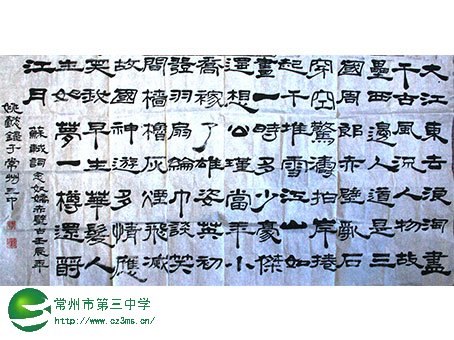 大江東去浪淘盡
千古風流人物故
壘西邊人道是三
國周郎赤壁亂石
穿空驚濤拍岸捲
起千堆雪江山如
畫一時多少豪傑
遥想公瑾當年小
喬嫁了雄姿英初
發羽扇綸巾談笑
間檣櫓灰煙飛滅
故國神游多情應
笑我早生華髮人
生如夢一樽還酹
江月
蘇軾詞念奴嬌赤壁古壬辰年
姚錄於常州三中
常州市第三中学
http://www.cz3ms.cn/